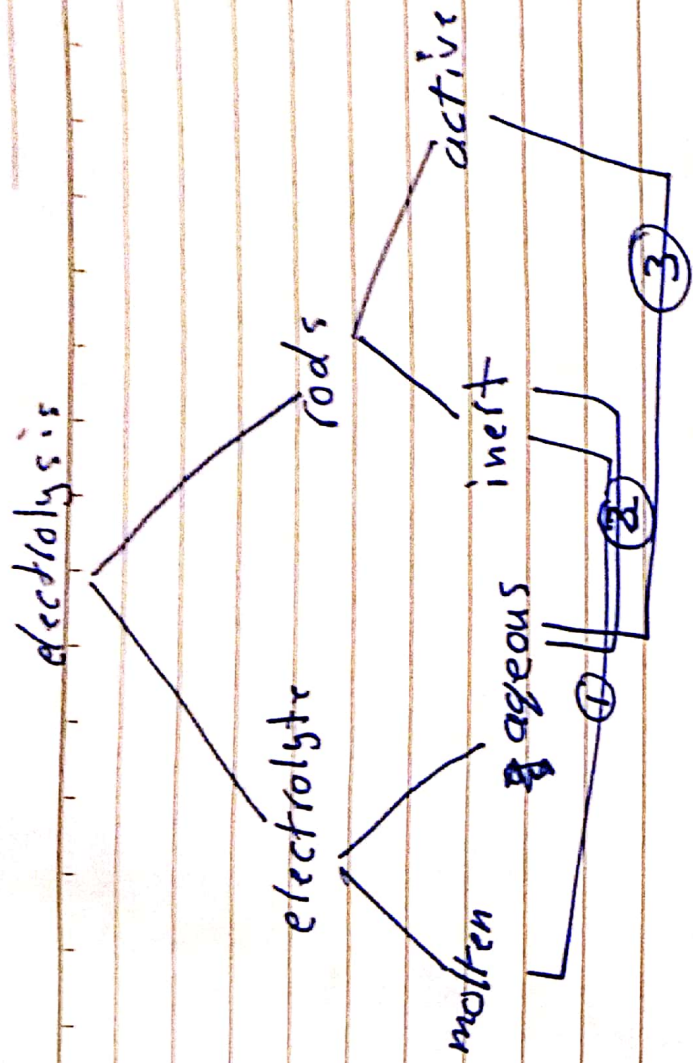 electrolysis
electrolyte rods
molten aqeous inert active
1 2 3